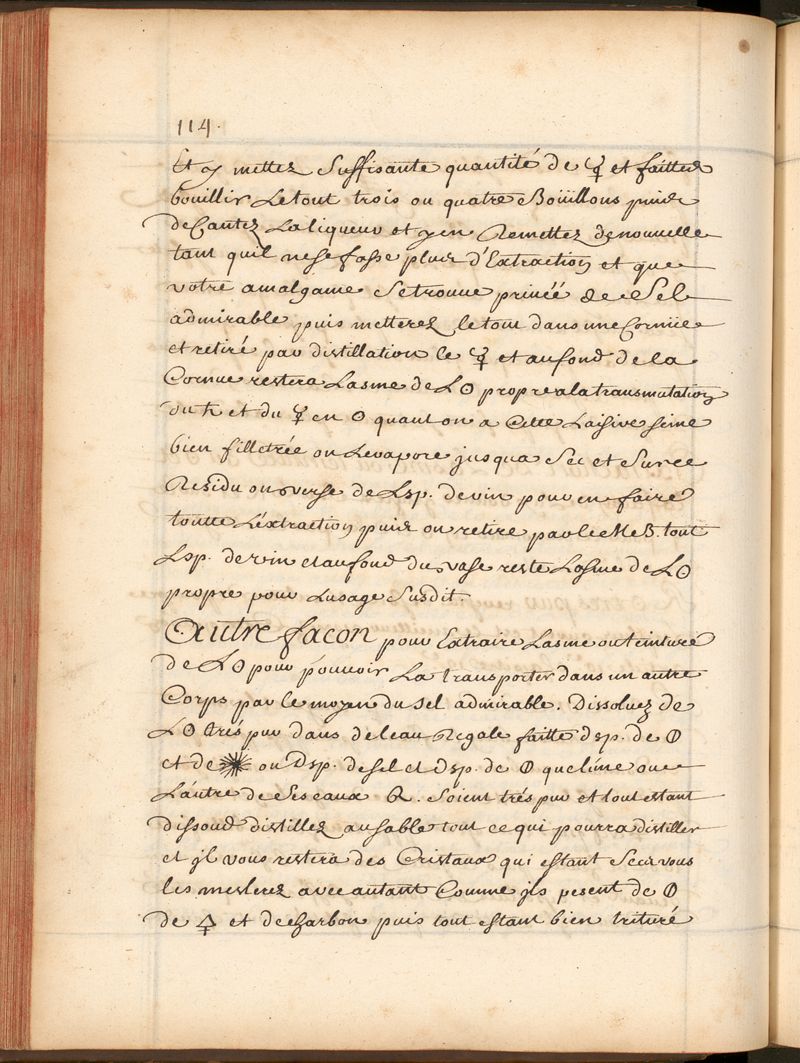 114.
Et y mettez Suffisante quantité de ☿ et faitted
bouillir Le tout trois ou quatre Boüillons puid
deCantez La liqueur et y en Remettez de nouuelle
tant quil ne se fasse plud d'Extraction et que
votre amalgame Se trouue priuéé de Sel
admirable puis metterez le tout dans une Cornüe
et retiré par distillation le ☿ et au fond de la
Cornue restera Lasme de L☉ propre a la transmutation
du ♄ et du ☿ en ☉ quant on a Cette Laisive
bien filletrée on Levapore jusqua Sec et Sur ce
Residu on verse de Lsp. de vin pour en faire
toutte L'éxtraction puid on retire par le M B. tout
Lsp. de vin et au fond du vase reste Lasme de L☉
propre pour Lusage Susdit.
Autre facon pour Extraire Lasme ou teinture
de L☉ pour pouuoir La transporter dans un autre
Corps par le moyen du sel admirable. Dissoluez de
L☉ trés pur dans de leau Regale faitte dsp. de 🜕
et de ✴ ou Dsp. de sel et Dsp. de 🜕 que lúne ou
Láutre de Ses eaux R. Soient trés pur et tout estant
dissoud distillez au sable tout ce qui pourra distiller
et jl vous restera des Cristaux qui estant Secs vous
les meslerez avec autant Comme jls pesent de 🜕
de 🜍 et de charbon puis tout estant bien trituré